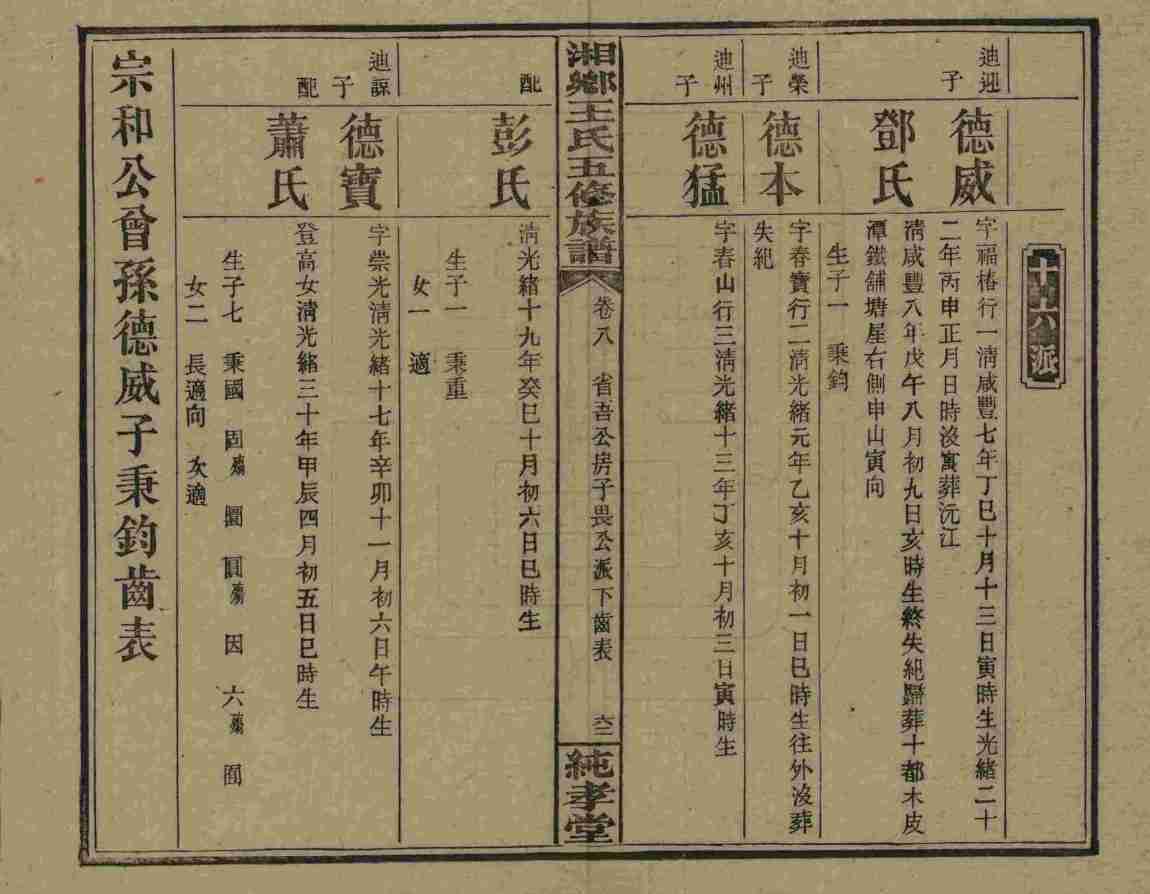 十六派
迪迎子
德威
字福椿行一清咸豐七年丁巳十月十三日寅時生光緒二十
二年丙申正月日時沒寓葬沅江
鄧氏
清咸豐八年戊午八月初九日亥時生終失紀歸葬十都木皮
潭鐵舖塘屋右側申山寅向
生子一 秉鈞
迪榮子
德本
字春寶行二清光緒元年乙亥十月初一日巳時生往外沒葬
失紀
迪州子
德猛
字春山行三清光緒十三年丁亥十月初三日寅時生
湘鄉王氏五修族譜
卷八 省吾公房子畏公派下齒表 六二
純孝堂
配
彭氏
清光緒十九年癸巳十月初六日巳時生
生子一 秉重
女一 適
迪謀子
德寶
字崇光清光緒十七年辛卯十一月初六日午時生
配
蕭氏
登高女清光緒三十年甲辰四月初五日巳時生
生子七 秉國 固殤 圜 圓殤 因 六殤 囿
女二 長適向 次適
宗和公曾孫德威子秉鈞齒表